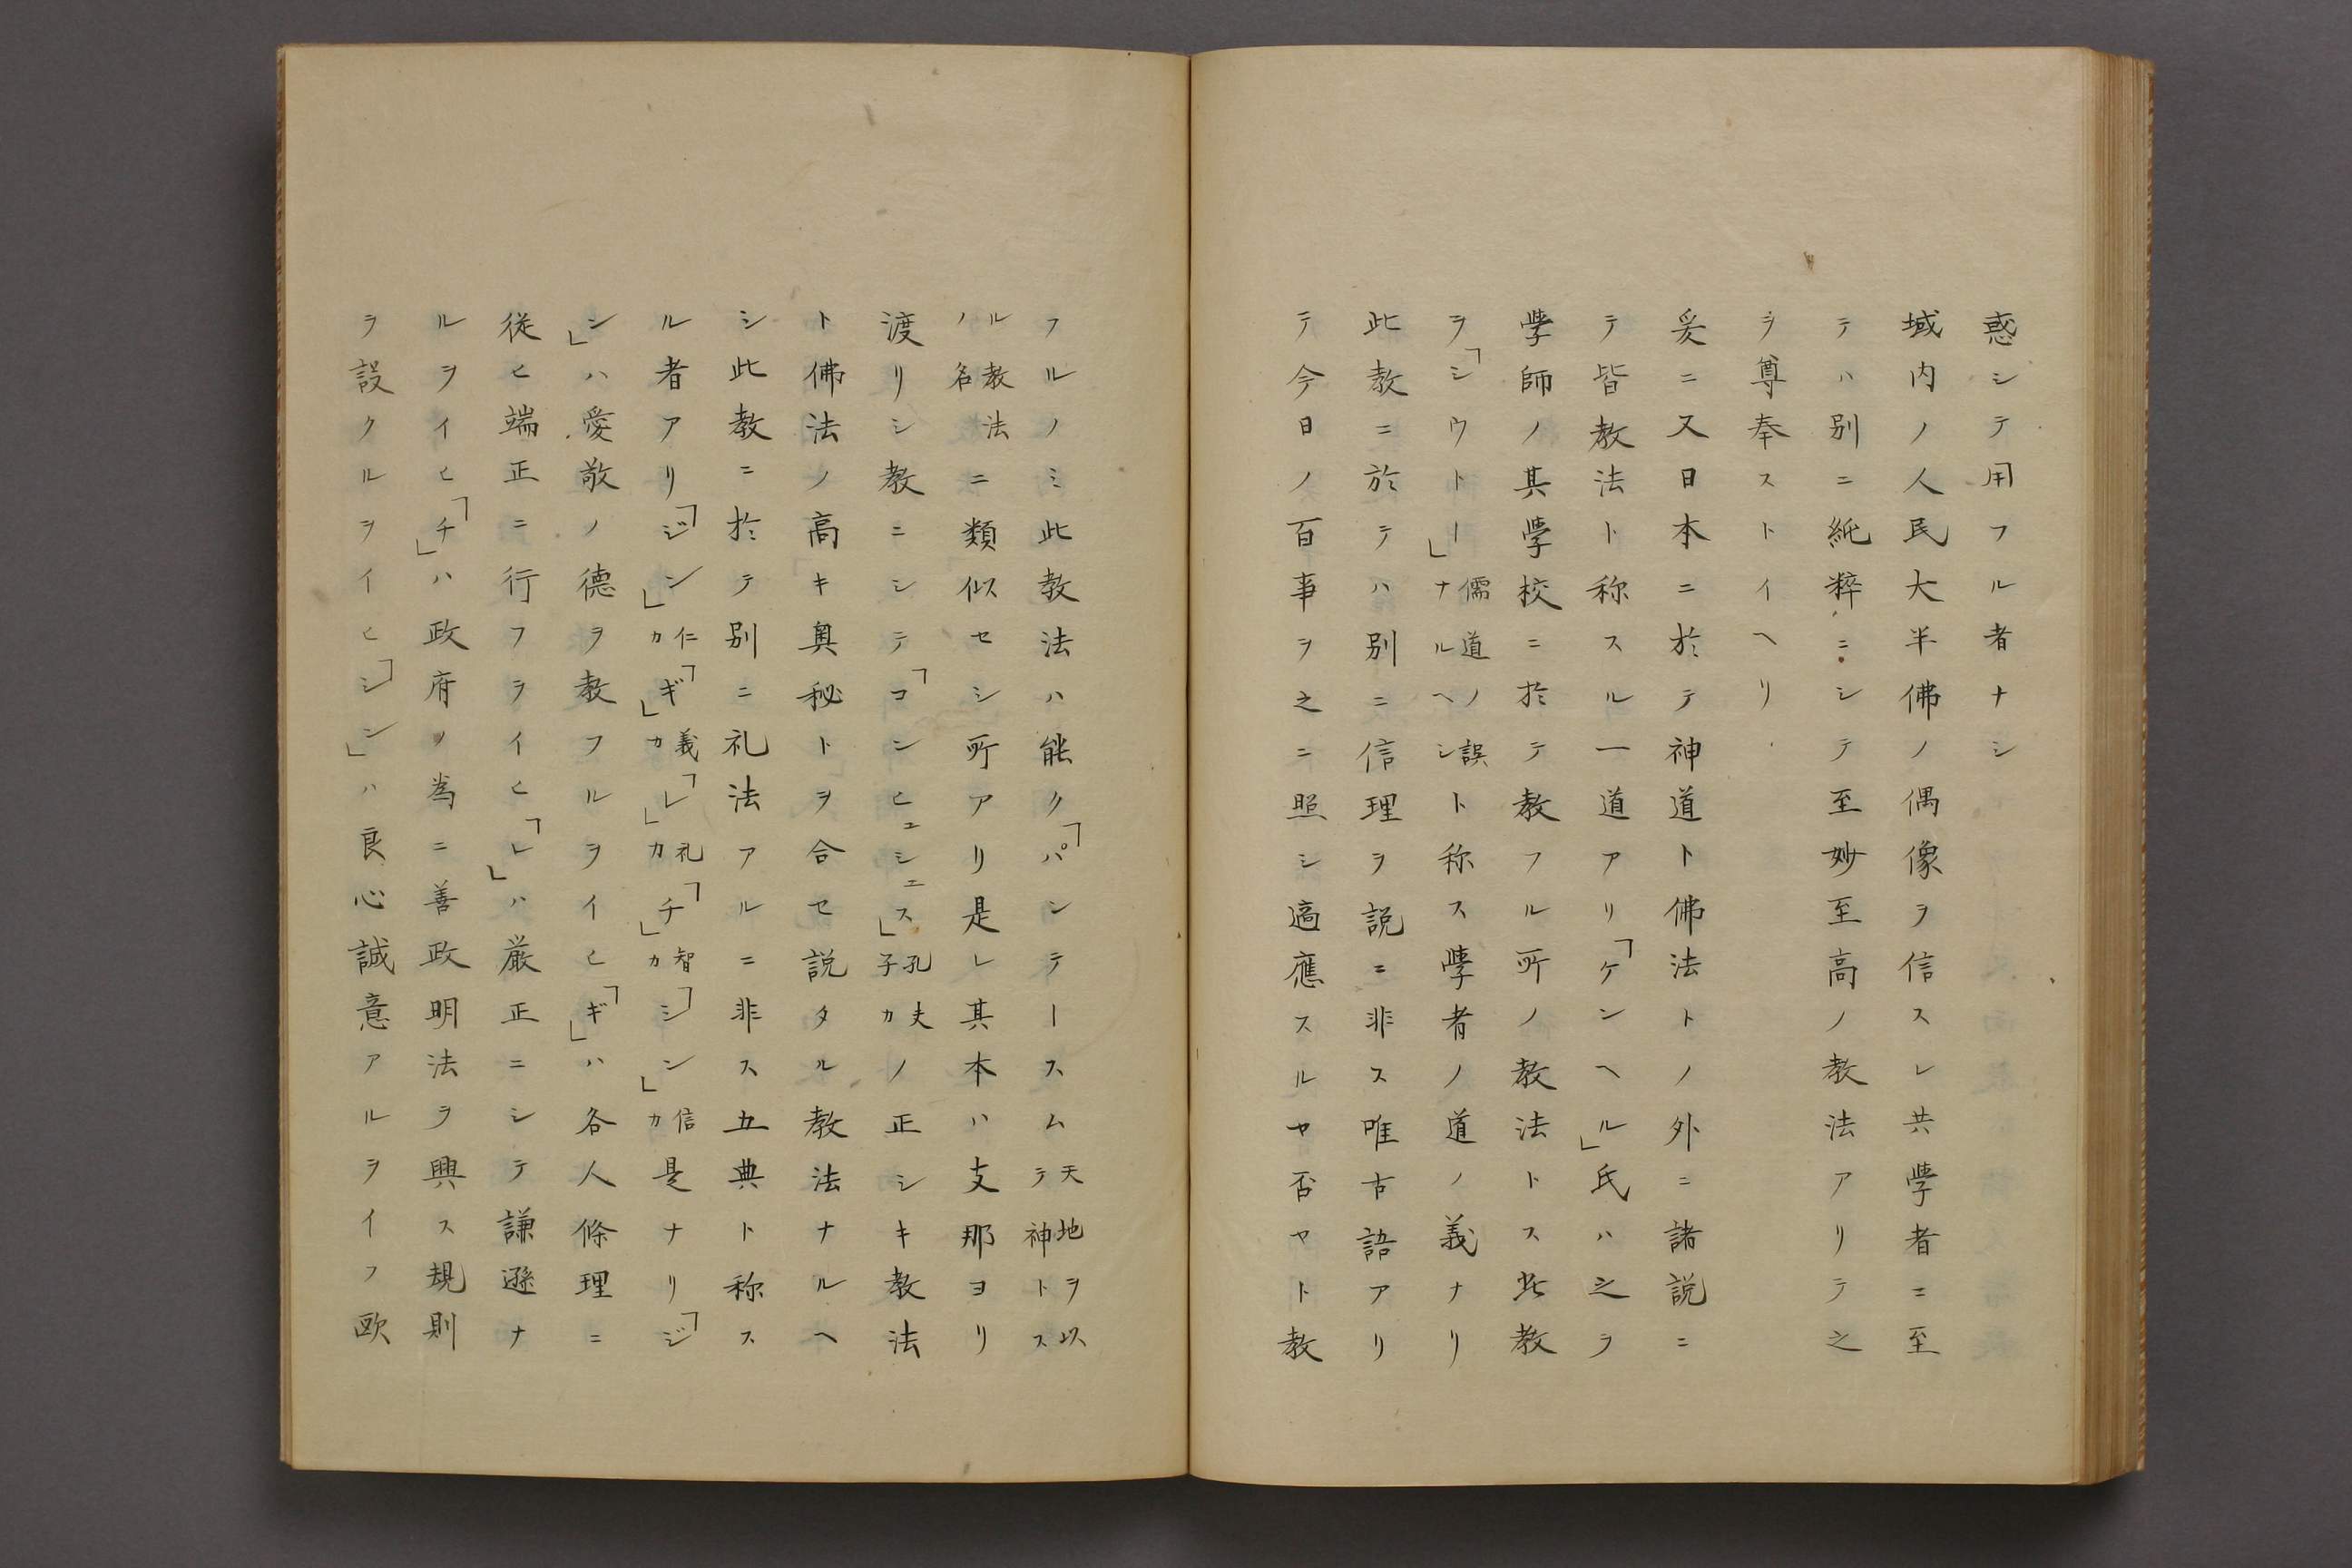 惑シテ用フル者ナシ
域内ノ人民大半佛ノ偶像ヲ信スレ共學者ニ至
テハ別ニ純粹ニシテ至妙至高ノ教法アリテ之
ヲ尊奉ストイヘリ
爰ニ又日本ニ於テ神道ト佛法トノ外ニ諸説ニ
テ皆教法ト称スル一道アリ「ケンヘル」氏ハ之ヲ
學師ノ其學校ニ於テ教フル所ノ教法トス此教
ヲ「シウトー」儒道ノ誤ナルヘシト称ス學者ノ道ノ義ナリ
此教ニ於テハ別ニ信理ヲ説ニ非ス唯古語アリ
テ今日ノ百事ヲ之ニ照シ適應スルヤ否ヤト教
フルノミ此教法ハ能ク「パンテースム天地ヲ以テ神トス
ル教法ノ名ニ類似セシ所アリ是レ其本ハ支那ヨリ
渡リシ教ニシテ「コンヒュシェス」孔夫子カノ正シキ教法
ト佛法ノ高キ奥秘トヲ合セ説タル教法ナルヘ
シ此教ニ於テ別ニ礼法アルニ非ス五典ト称ス
ル者アリ「ジン」仁カ「ギ」義カ「レ」礼カ「チ」智カ「シン」信カ是ナリ「ジ
ン」ハ愛敬ノ德ヲ教フルヲイヒ「ギ」ハ各人條理ニ
従ヒ端正ニ行フヲイヒ「レ」ハ厳正ニシテ謙遜ナ
ルヲイヒ「チ」ハ政府ノ為ニ善政明法ヲ興ス規則
ヲ設クルヲイヒ「シン」ハ良心誠意アルヲイフ欧